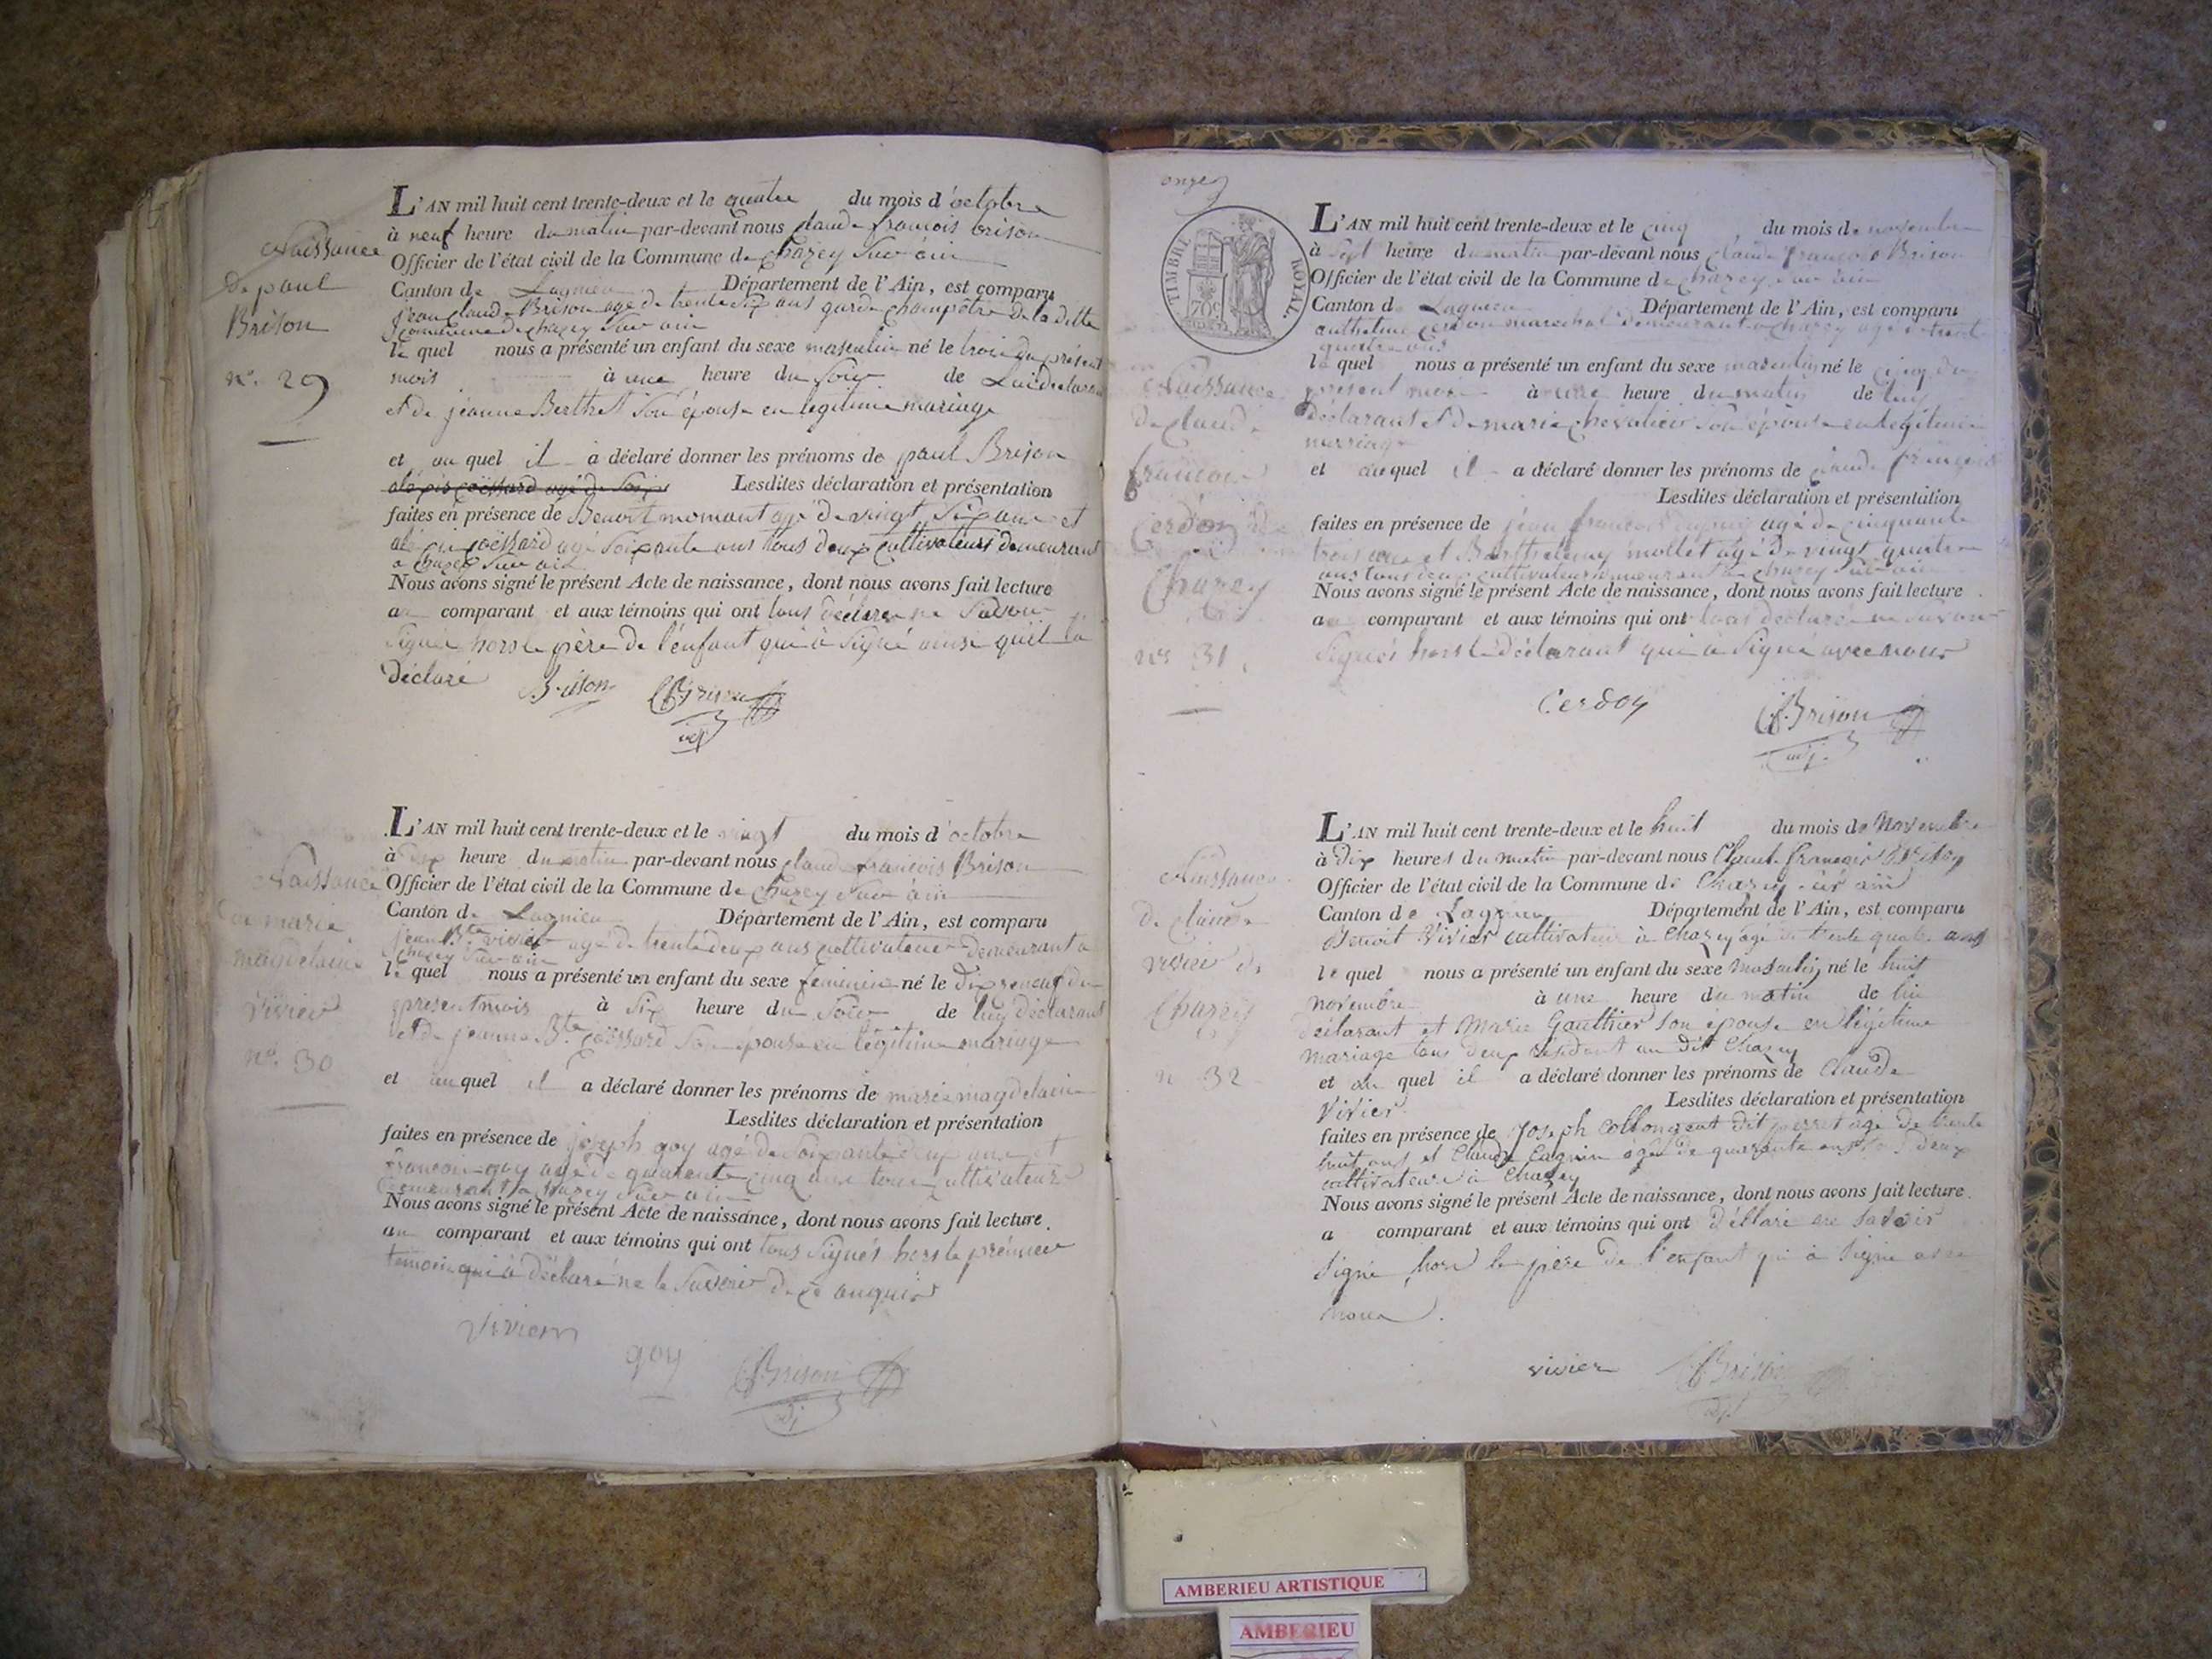 Naissance
de paul
Brison
n°. 29
L'AN mil huit cent trente-deux et le quatre du mois d'octobre
à neuf heure du matin par-devant nous claude françois brison
Officier de l'état civil de la Commune de chazey sur ain
Canton de Lagnieu Département de l'Ain, est comparu
jean claude Brison agé de trente six ans garde champêtre de la ditte
commune de chazey sur ain
le quel nous a présenté un enfant du sexe masculin né le trois du présent
mois à une heure du soir de Lui déclarant
et de jeanne Berthet son épouse en legitime mariage
et au quel il a déclaré donner les prénoms de paul Brison
Lesdites déclaration et présentation
faites en présence de Benoit momant agé de vingt six ans et
agé soixante ans tous deux cultivateurs demeurant
a chazey sur ain
Nous avons signé le présent Acte de naissance, dont nous avons fait lecture
au comparant et aux témoins qui ont tous déclaré ne savoir
signer hors le père de l'enfant qui à signé ainsi quil la
déclaré
Brison CFBrison
adj
Naissance
de marie
magdelaine
vivier
n°. 30
L'AN mil huit cent trente-deux et le vingt du mois d'octobre
à six heure du matin par-devant nous claude francois Brison
Officier de l'état civil de la Commune de chazey sur ain
Canton de Lagnieu Département de l'Ain, est comparu
jean Bte vivier agé de trente deux ans cultivateur demeurant a
chazey sur ain
le quel nous a présenté un enfant du sexe feminin né le dix neuf du
present mois à six heure du soir de luy déclarant
et de jeanne Bte son épouse en légitime mariage
et au quel il a déclaré donner les prénoms de marie magdelaine
Lesdites déclaration et présentation
faites en présence de joseph goy agé de soixante deux ans et
francois goy agé de quarente cinq ans tous cultivateurs
demeurant a chazey sur ain
Nous avons signé le présent Acte de naissance, dont nous avons fait lecture.
au comparant et aux témoins qui ont tous signés hors le premier
temoin qui à déclaré ne le savoir de ce enquis
vivier
goy CFBrison
adj
onze
TIMBRE ROYAL.
70
Naissance
de claude
francois
Cerdon de
Chazey
n° 31
L'AN mil huit cent trente-deux et le cinq du mois de novembre
à sept heure du matin par-devant nous claude françois Brison
Officier de l'état civil de la Commune de chazey sur ain
Canton de Lagnieu Département de l'Ain, est comparu
anthelme cerdon marechal demeurant a chazey agé de trente
quatre ans
le quel nous a présenté un enfant du sexe masculin né le cinq du
présent mois à une heure du matin de luy
déclarant et de marie chevalier son épouse en légitime
mariage
et auquel il a déclaré donner les prénoms de claude françois
Lesdites déclaration et présentation
faites en présence de jean francois dupuis agé de cinquante
trois ans et Barthelemy mollet agé de vingt quatre
ans tous deux cultivateurs demeurant a chazey sur ain
Nous avons signé le présent Acte de naissance, dont nous avons fait lecture.
au comparant et aux témoins qui ont tous déclaré ne savoir
signés hors le déclarant qui à signé avec nous
Cerdon CFBrison
adj.
Naissance
de claude
vivier de
Chazey
n 32
L'AN mil huit cent trente-deux et le huit du mois de Novembre
à dix heures du matin par-devant nous Claude françois Brison
Officier de l'état civil de la Commune de Chazey sur ain
Canton de Lagnieu Département de l'Ain, est comparu
Benoit Vivier cultivateur à Chazey agé de trente quatre ans
le quel nous a présenté un enfant du sexe masculin né le huit
novembre à une heure du matin de lui
déclarant et Marie Gauthier son épouse en légitime
mariage tous deux résident au dit Chazey
et au quel il a déclaré donner les prénoms de Claude
Vivier Lesdites déclaration et présentation
faites en présence de Joseph Collongeat dit perret agé de trente
huit ans et Claude Cagnin agé de quarante ans tous deux
cultivateurs à Chazey
Nous avons signé le présent Acte de naissance, dont nous avons fait lecture.
a comparant et aux témoins qui ont déclaré ne savoir
signé hors le père de l'enfant qui à signé avec
nous.
vivier CFBrison
adj.
AMBERIEU ARTISTIQUE
AMBERIEU